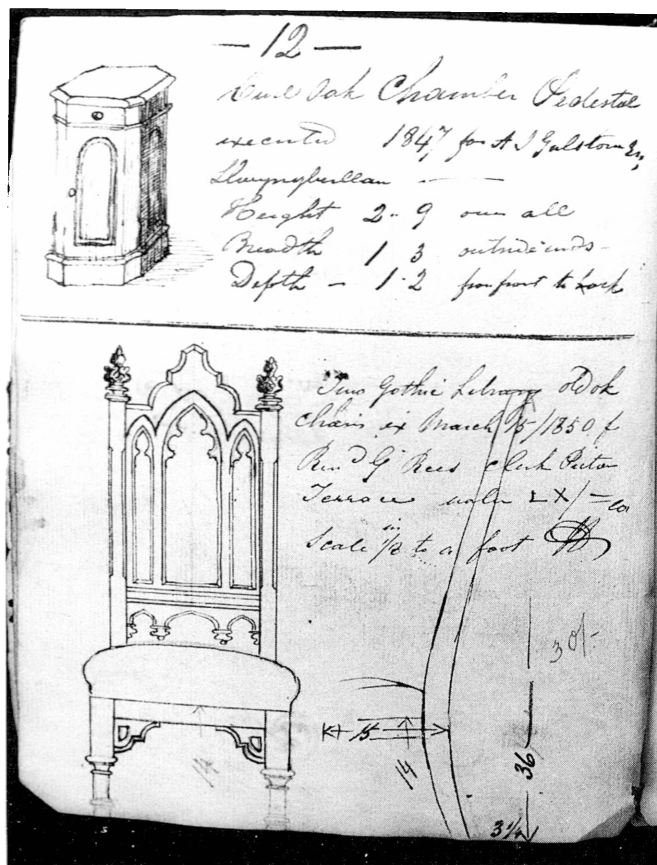 — 12 —
Oak Chamber Pedestal
executed 1847 for A J Gulston Esq,
Llwynyberllan —
Height 2 - 9 over all
Breadth 1 3 outside ends -
Depth - 1 - 2 from front to back
Two Gothic Library old ok
Chairs ex March 15/1850 f
Revd G Rees clerk Picton
Terrace X/-
Scale in 1/8 to a foot
30/-
15
14
14
36
3 1/4